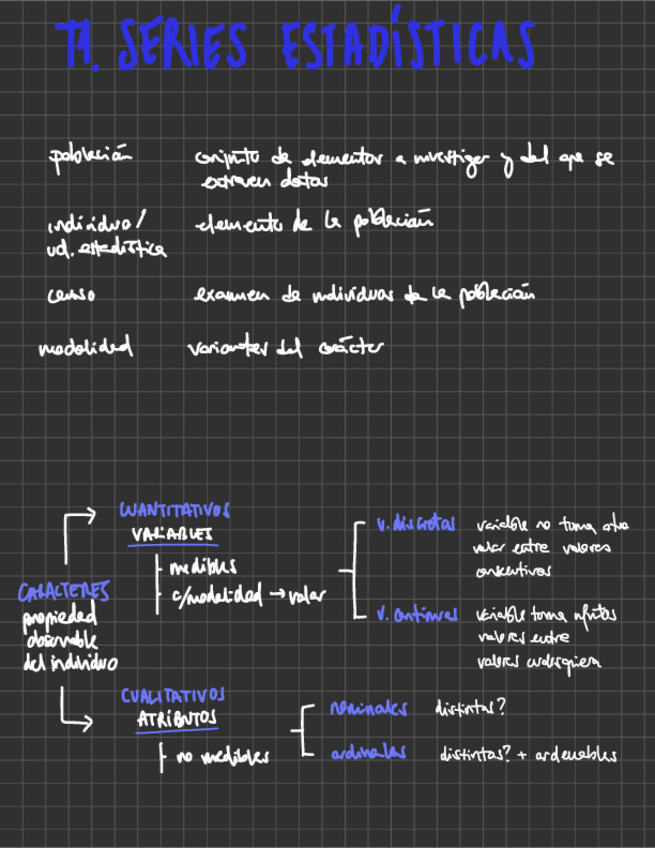 T1. SERIES ESTADÍSTICAS
población conjunto de elementos a investigar y del que se
extraen datos
individuo/ elemento de la población
ud. estadística
censo examen de individuos de la población
modalidad variantes del carácter
CUANTITATIVOS
VARIABLES
medibles
c/modalidad → valor
v. discretas variable no toma otro
valor entre valores
consecutivos
v. continuas variable toma infitos
valores entre
valores cualesquiera
CARACTERES
propiedad
observable
del individuo
CUALITATIVOS
ATRIBUTOS
no medibles
nominales distintas?
ordinales distintas? + ordenables